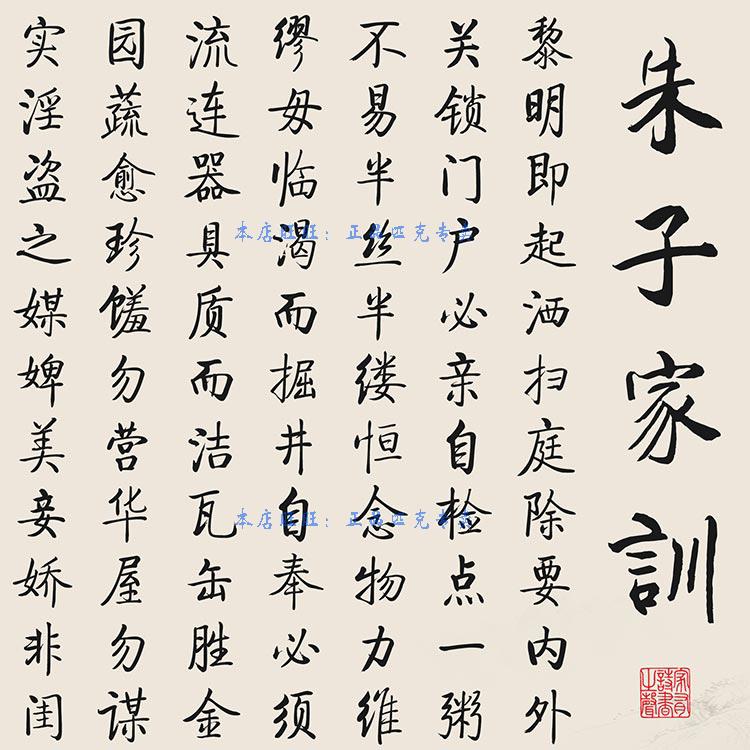 朱子家訓
黎明即起洒扫庭除要内外
关锁门户必亲自检点一粥
不易半丝半缕恒念物力维
缪毋临渴而掘井自奉必须
流连器具质而洁瓦缶胜金
园蔬愈珍馐勿营华屋勿谋
实淫盗之媒婢美妾娇非闺
本店旺旺：正品匹克专卖
本店旺旺：正品匹克专卖